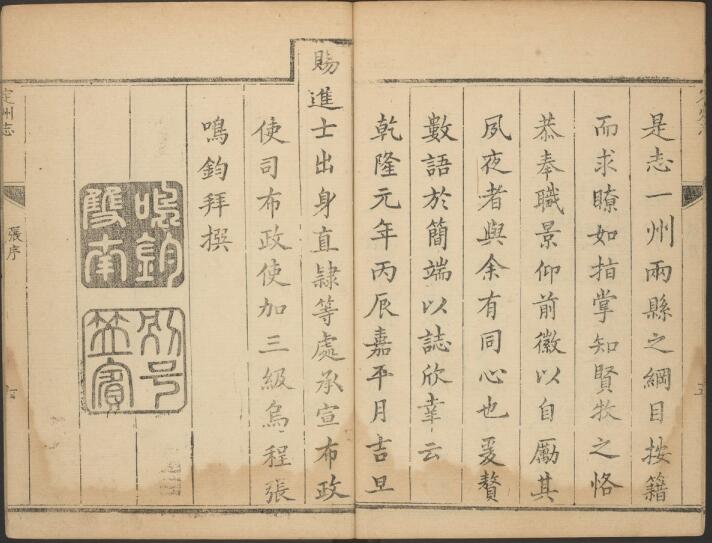 是志一州兩縣之綱目按籍
而求瞭如指掌知賢牧之恪
恭奉職景仰前徽以自勵其
夙夜者與余有同心也爰贅
數語於簡端以誌欣幸云
乾隆元年丙辰嘉平月吉旦
賜進士出身直隷等處承宣布政
使司布政使加三級烏程張
鳴鈞拜撰
鳴鈞
雙南
別号
笠賓
定州志
張序